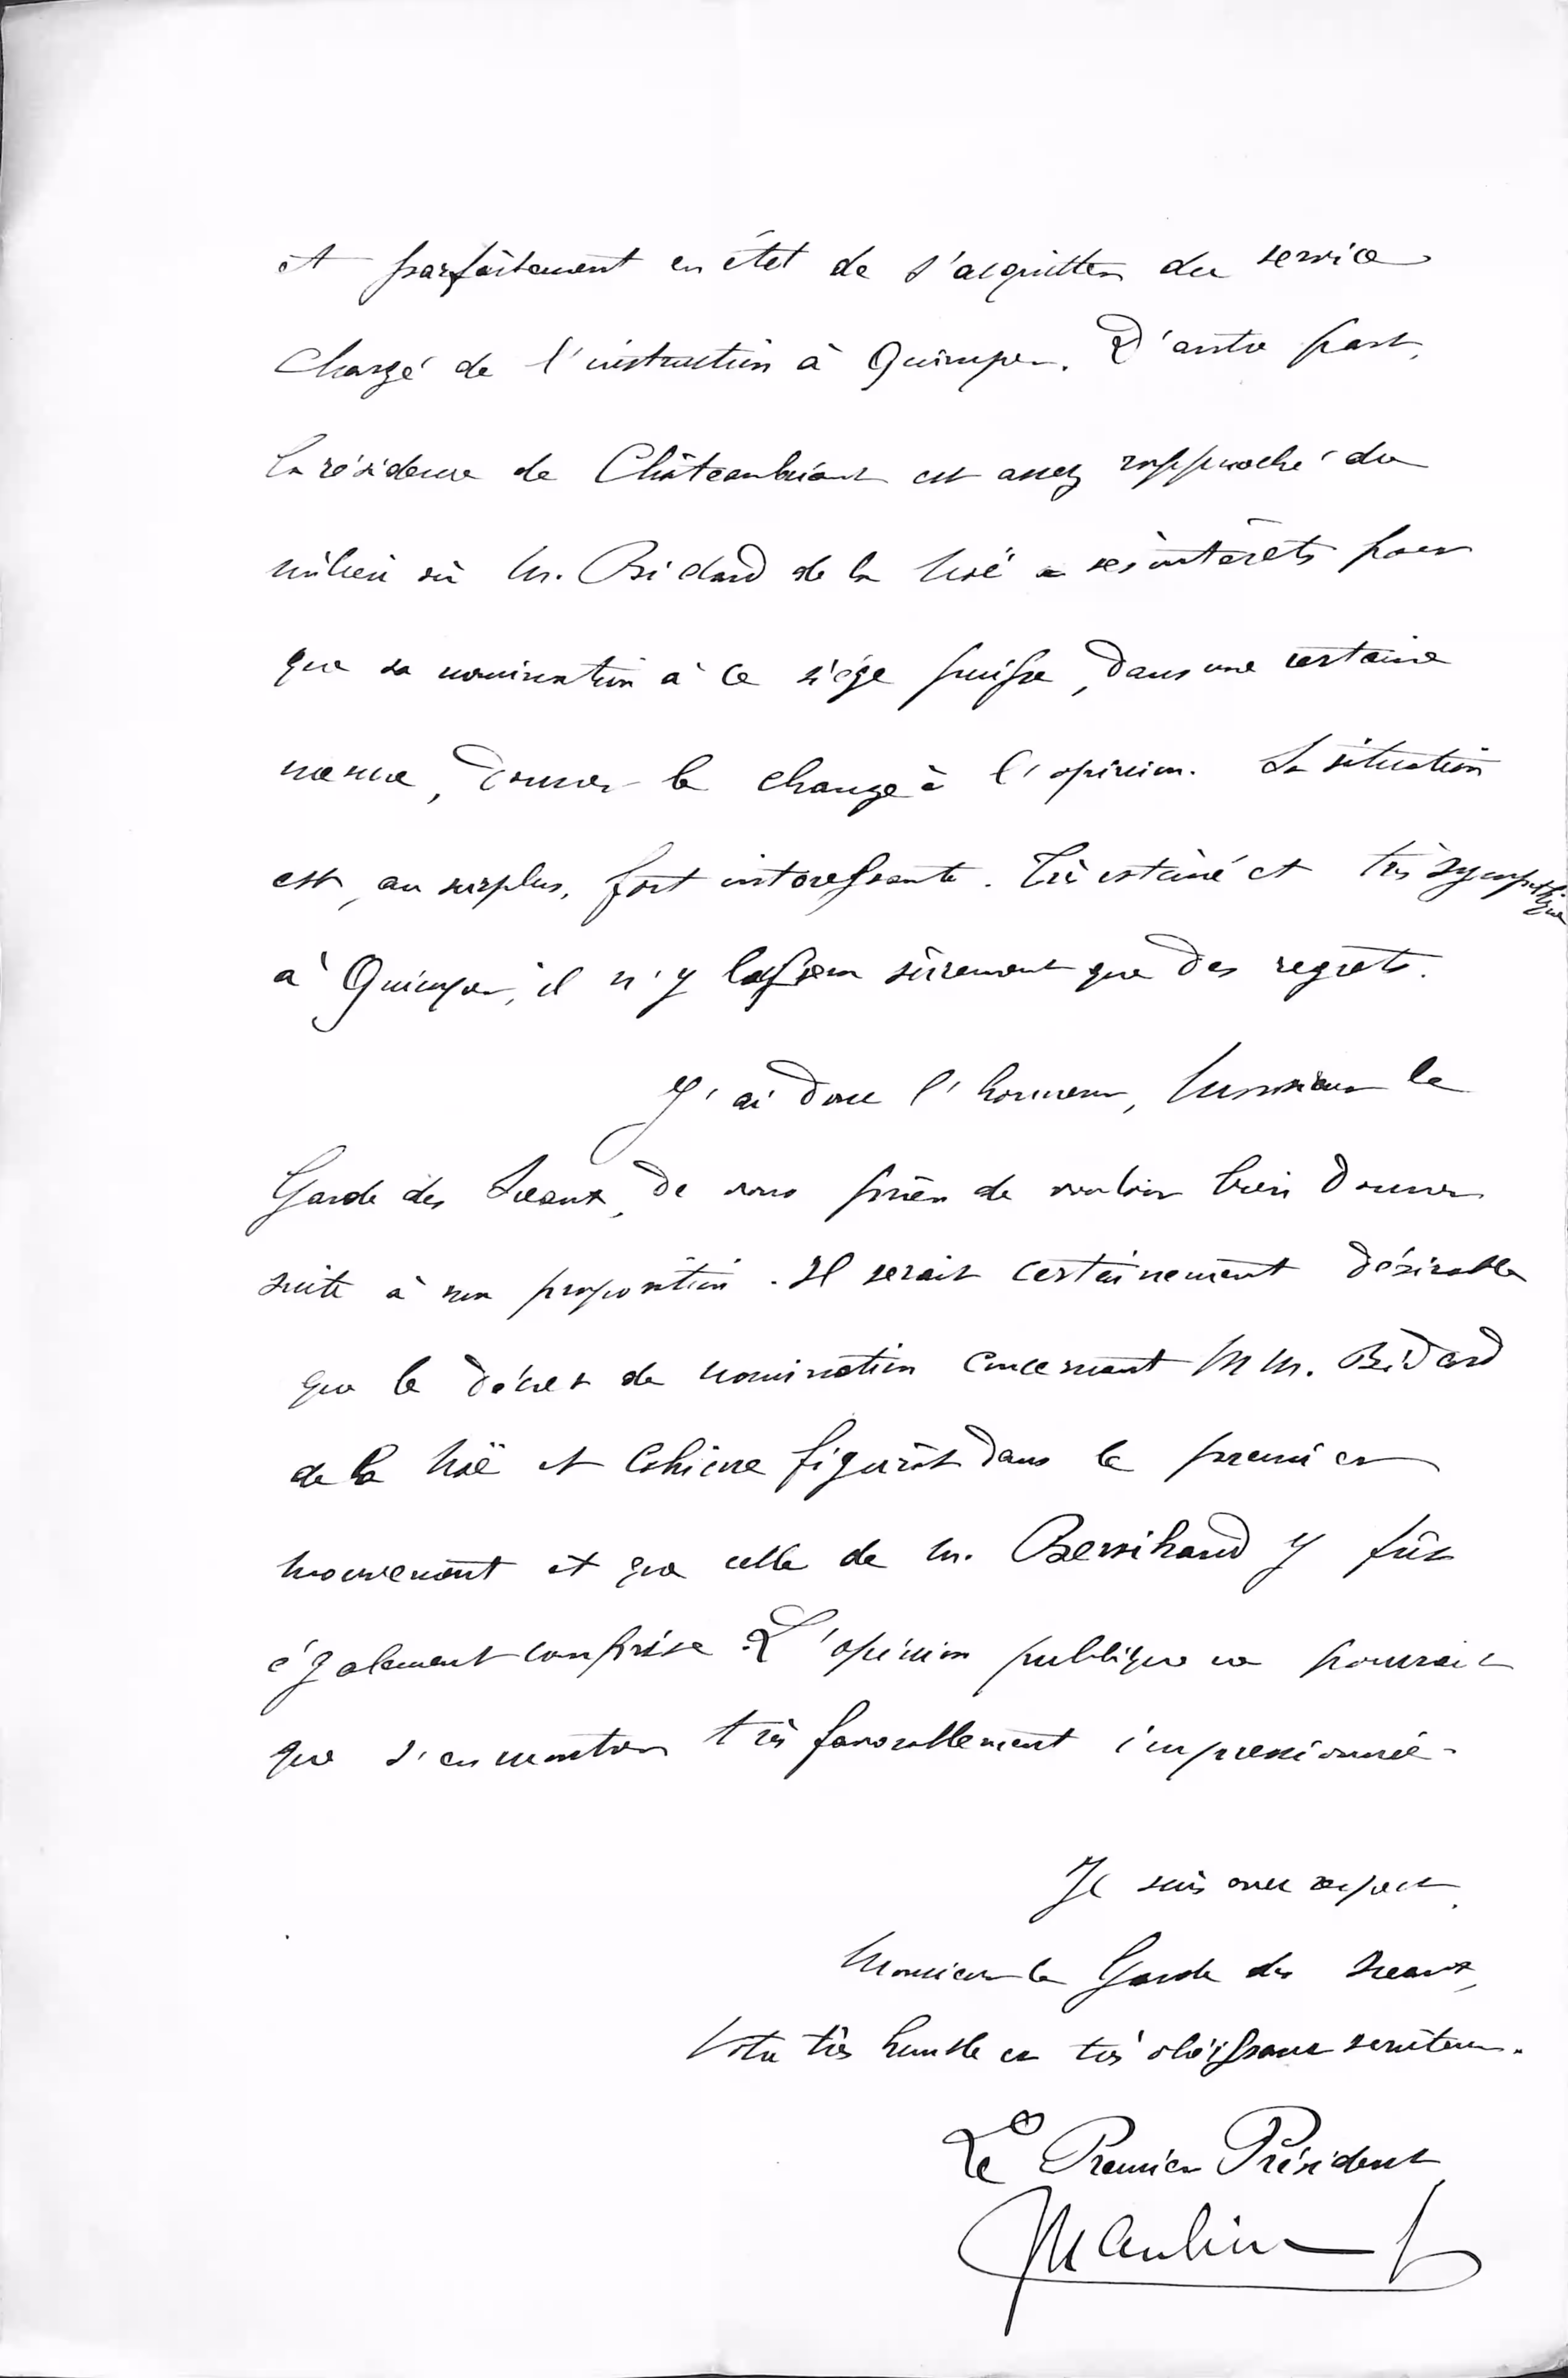 et parfaitement en état de s'acquitter du service
chargé de l'instruction à Quimper. D'autre part,
la résidence de Châteaubriant est assez rapproché du
milieu où M. Bidard de la Noë a ses intérêts pour
que sa nomination à ce siège puisse, dans une certaine
mesure, donner le change à l'opinion. La situation
est, au surplus, fort intéressante. Très estimé et très sympathique
à Quimper, il n'y laissera sûrement que des regrets.
J'ai donc l'honneur, Monsieur le
Garde des Sceaux, de vous prier de vouloir bien donner
suite à ma proposition. Il serait certainement désirable
que le décret de nomination concernant MM. Bidard
de la Noë et figurât dans le premier
mouvement et que celle de M. y fût
également comprise. L'opinion publique ne pourrait
que s'en montrer très favorablement impressionnée.
Je suis avec respect,
Monsieur le Garde des Sceaux,
Votre très humble et très obéissant serviteur.
Le Premier Président
Maulion